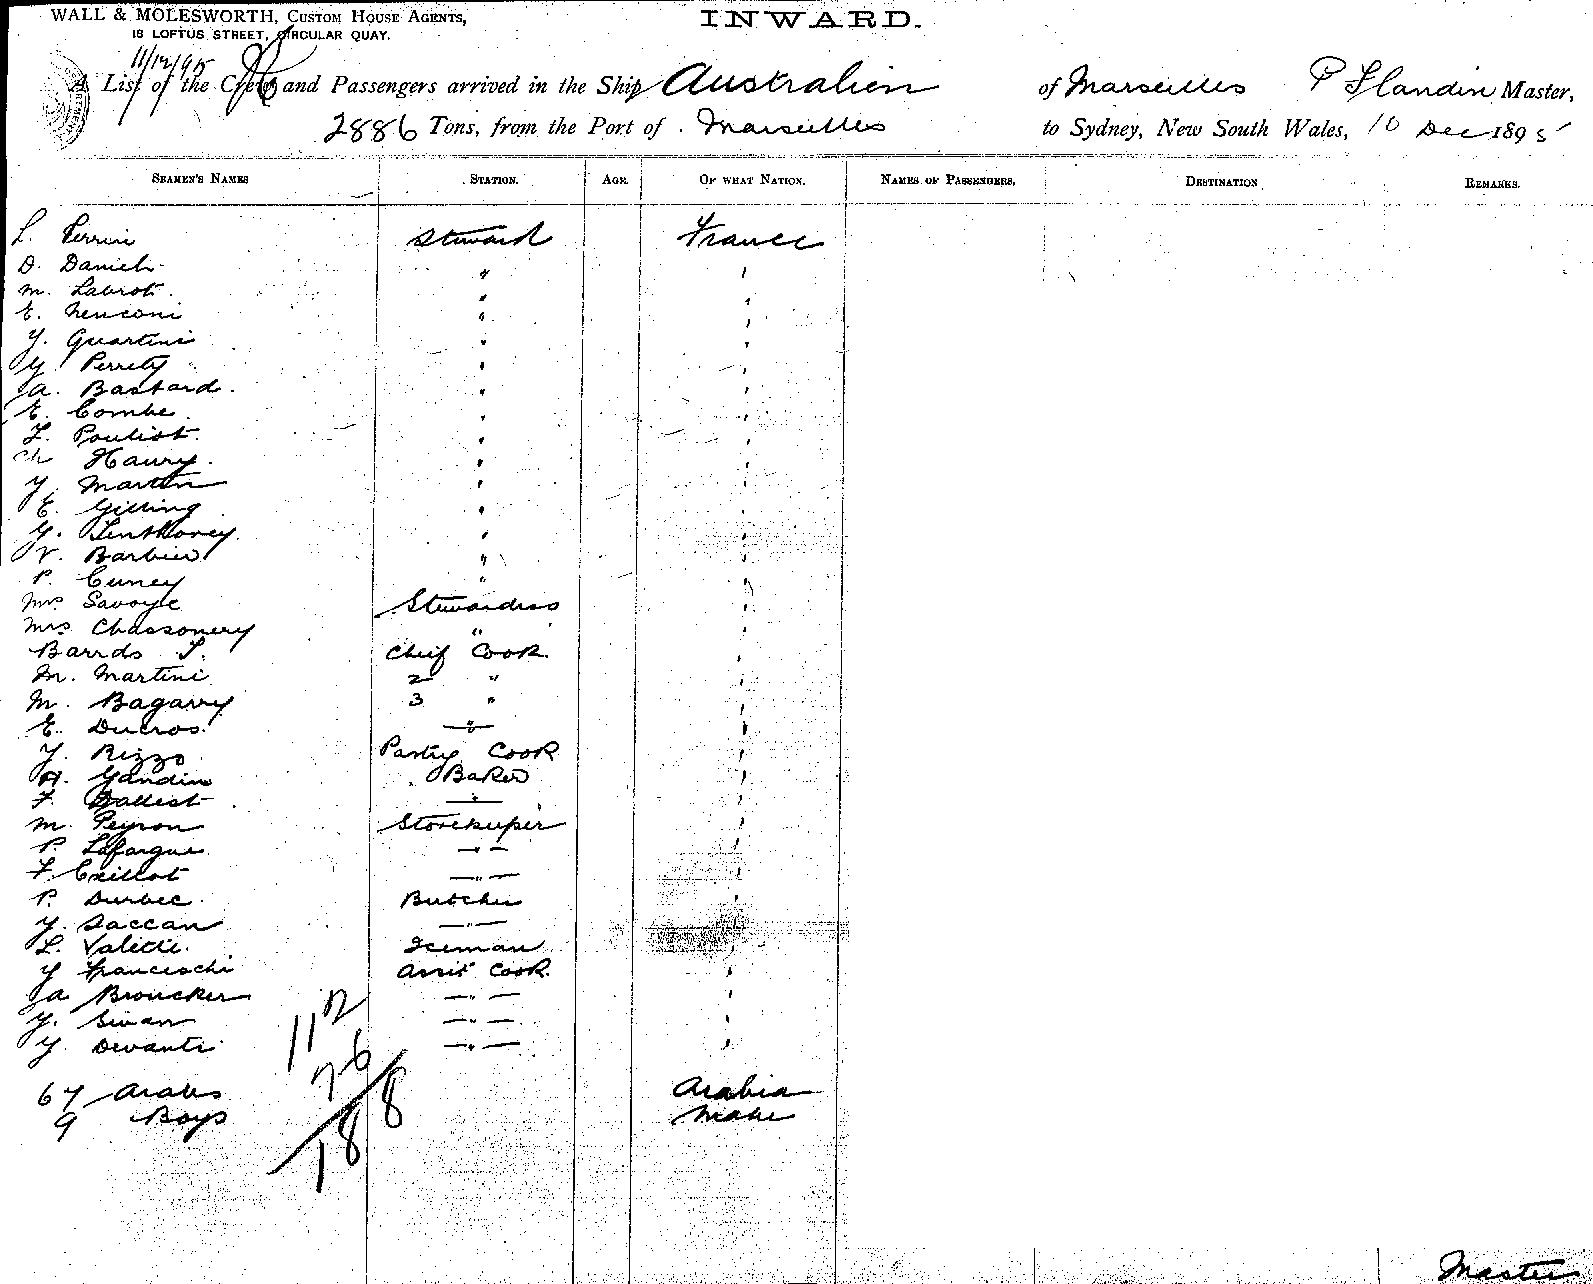 WALL & MOLESWORTH, CUSTOM HOUSE AGENTS,
18 LOFTUS STREET, CIRCULAR QUAY.
INWARD.
11/12/95
A List of the Crew and Passengers arrived in the Ship Australien of Marseilles P Flandin Master,
2886 Tons, from the Port of Marseilles to Sydney, New South Wales, 10 Dec 1895
SEAMEN'S NAMES STATION. AGE. OF WHAT NATION. NAMES OF PASSENGERS. DESTINATION REMARKS.
L. Perrin Steward France
D. Daniel "
M. Labrot "
E. Nenconi "
Y. Quartini "
Y. Perrety "
Ja. Bastard "
E. Combe "
F. Pouliot "
Ch Haury "
Y. Martin "
E. Gilling "
Y. "
V. Barbier "
P. Cuney "
Mrs Savoye Stewardess
Mrs Chassonery "
Barrds Chief Cook
M. Martini 2 "
M. Bagarry 3 "
E. Ducros "
Y. Rizzo Pastry Cook
A. Gandin Baker
F. Ballest "
M. Peyron Storekeeper
P. Lafargue "
F. Caillot "
P. Durbec Butcher
Y. Saccan "
L. Valette Iceman
Y Franceschi Assit Cook
Ja Broucker "
Y. Sivan "
Y Devanti "
112
76
188
67 Arabs Arabia
9 Boys Mahe
Master